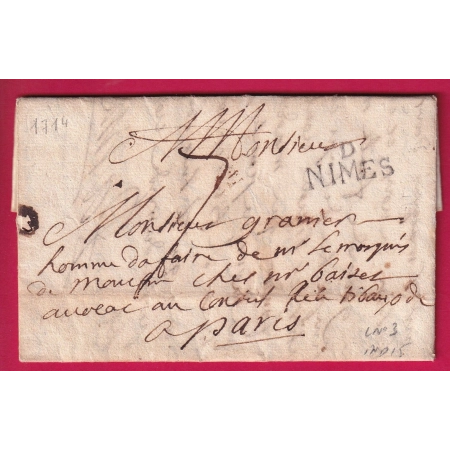 1714
A Monsieur
D
NIMES
Monsieur granier
homme dafaire de mr le marquis
de ches mr
avocat au Conseil
a paris
LN°3
IND 15